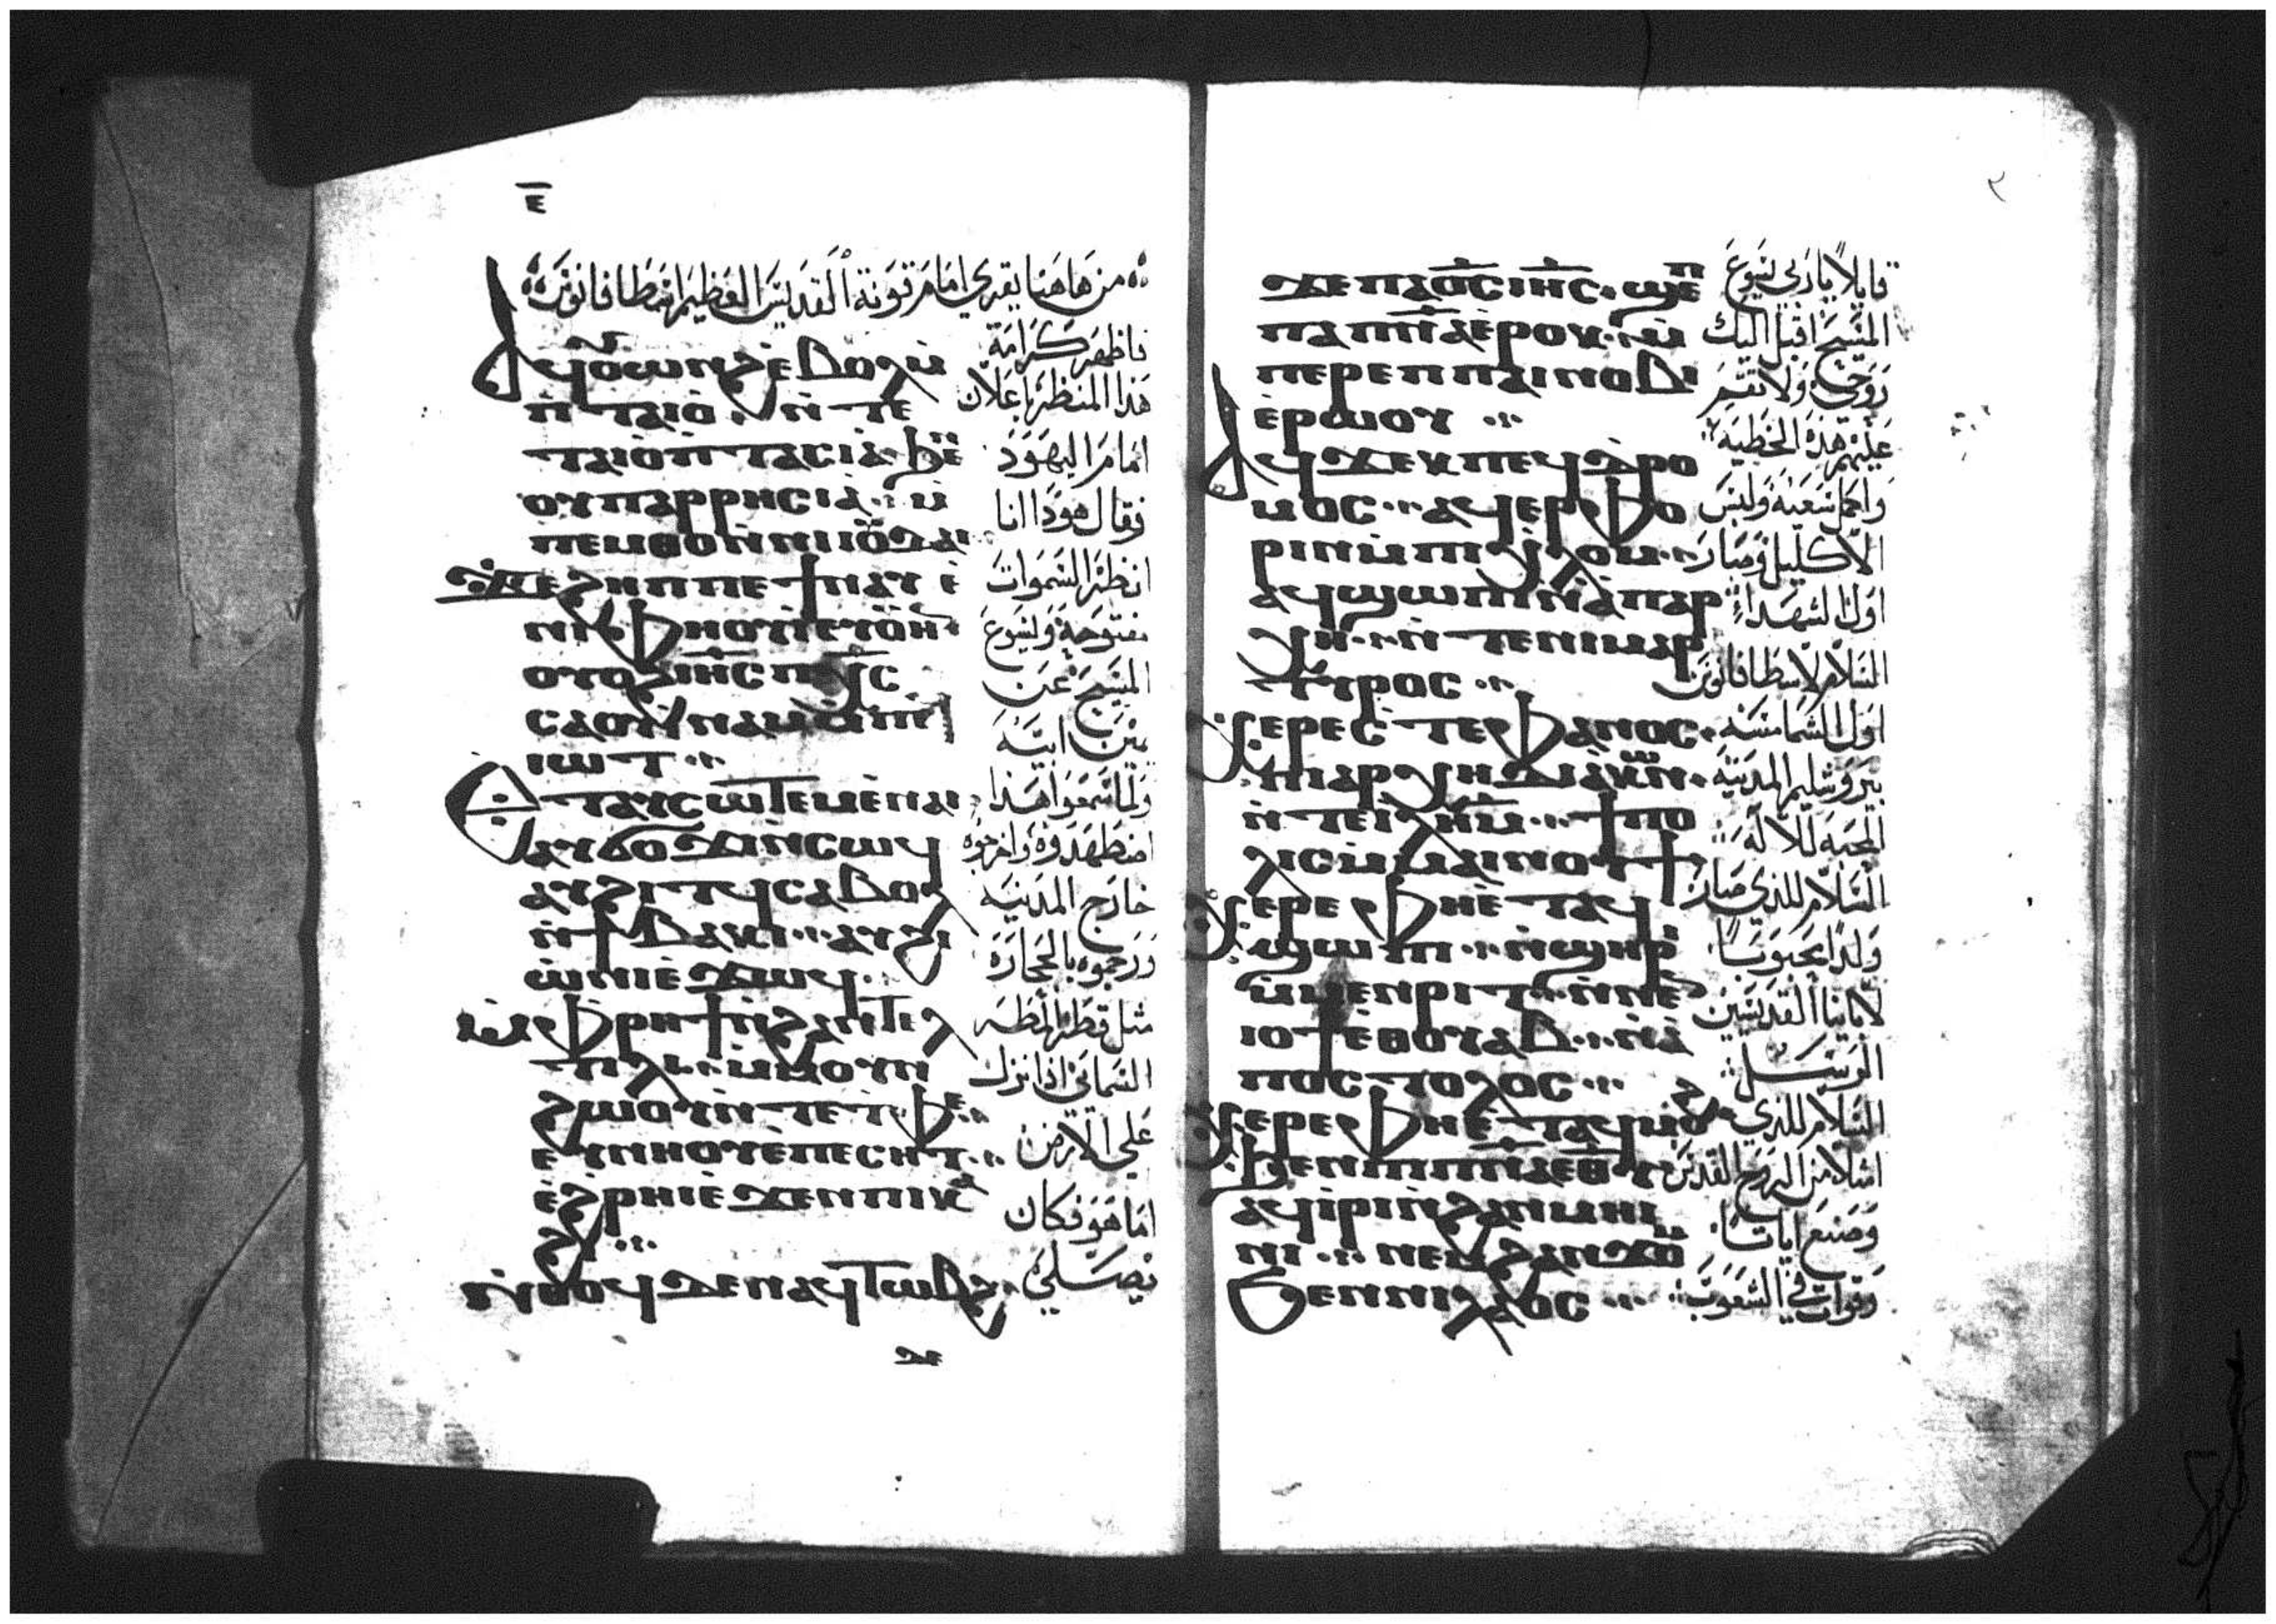 ⲉ̅
من هاهنا يقري امام قونة القديس العظيم اسطافانوس
ⲁϥⲟⲩⲱⲛϩ ⲉ̀ⲃⲟⲗ ⲙ̀
ⲡ̀ⲧⲁⲓⲟ̀ ⲛ̀ⲧⲉ
ⲟⲩⲡⲁⲣⲣⲏⲥⲓⲁ̀ ⲙ̀
ⲡⲉⲙⲑⲟ ⲛ̀ⲛⲓⲓⲟⲩⲇⲁⲓ
ϫⲉ ϩⲏⲡⲡⲉ ϯⲛⲁⲩ ⲉ̀
ⲛⲓⲫⲏⲟⲩⲓ̀ ⲉⲩⲟⲩⲏⲛ
ⲟⲩⲟϩ ⲓⲏⲥ ⲡⲭⲥ
ⲥⲁⲟⲩⲓ̀ⲛⲁⲙ ⲙ̀ⲡⲉϥ
ⲓⲱⲧ
ⲉ̀ⲧⲁⲩⲥⲱⲧⲉⲙ ⲉ̀ⲛⲁⲓ
ⲁⲩϭⲟϫⲓ ⲛ̀ⲥⲱϥ
ⲁⲩϩⲓⲧϥ ⲥⲁⲃⲟⲗ
ⲛ̀ϯⲃⲁⲕⲓ ⲁⲩϩⲓ
ⲱ̀ⲛⲓ ⲉ̀ϫⲱϥ
ⲙ̀ⲫⲣⲏϯ ⲛ̀ϩⲁⲛⲧⲉⲗ
ⲧⲓⲗⲓ ⲙ̀ⲙⲟⲩⲛ
ϩⲱⲟⲩ ⲛ̀ⲧⲉ ⲧⲫⲉ
ⲉⲩⲛⲏⲟⲩ ⲉ̀ⲡⲉⲥⲏⲧ
ⲉ̀ϩⲣⲏⲓ ⲉ̀ϫⲉⲛ ⲡⲓⲕⲁ
ϩⲓ
ⲛ̀ⲑⲟϥ ⲇⲉ ⲛⲁϥⲧⲱⲃϩ
فاظهر كرامة
هذا المنظر باعلان
امام اليهود
فقال هوذا انا
انظر السموات
مفتوحة ويسوع
المسيح عن
يمين ابيه
ولما سمعوا هذا
اضطهدوه واخرجوه
خارج المدينة
ورجموه بالحجارة
مثل قطر المطر
السمائي اذا نزل
علي الارض
اما هو فكان
يصلي
ϫⲉ
٢
ϫⲉ ⲡⲁⲟ̅ⲥ̅ ⲓⲏ̅ⲥ̅ ϣⲉⲡ
ⲡⲁⲡⲛⲁ ⲉ̀ⲣⲟⲕ ⲙ̀
ⲡⲉⲣⲉⲡ ⲡⲁⲓⲛⲟⲃⲓ
ⲉ̀ⲣⲱⲟⲩ
ⲁϥϫⲉⲕ ⲡⲉϥⲇⲣⲟ
ⲙⲟⲥ ⲁϥⲉⲣⲫⲟ
ⲣⲓⲛ ⲙ̀ⲡⲓⲭⲗⲟⲙ
ⲁϥϣⲱⲡⲓ ⲛ̀ⲁⲡⲁⲣ
ⲭⲏ ⲛ̀ⲧⲉ ⲛⲓⲙⲁⲣ
ⲧⲩⲣⲟⲥ
ⲭⲉⲣⲉ ⲥ̀ⲧⲉⲫⲁⲛⲟⲥ
ⲡⲓⲁⲣⲭⲏⲇⲓⲁⲕⲱⲛ
ⲛ̀ⲧⲉ ⲓⲗⲏⲙ ϯⲡⲟ
ⲗⲓⲥ ⲙ̀ⲙⲁⲓⲛⲟⲩϯ
ⲭⲉⲣⲉ ⲫⲏⲉ̀ⲧⲁϥ
ϣⲱⲡⲓ ⲛ̀ϣⲏⲣⲓ
ⲙ̀ⲙⲉⲛⲣⲓⲧ ⲛ̀ⲛⲉ
ⲓⲟϯ ⲉⲑⲟⲩⲁⲃ ⲛ̀ⲁ̀
ⲡⲟⲥⲧⲟⲗⲟⲥ
ⲭⲉⲣⲉ ⲫⲏⲉ̀ⲧⲁϥⲙⲟϩ
ϧⲉⲛ ⲡⲓⲡⲛⲁ ⲉⲑⲩ
ⲁϥⲓ̀ⲣⲓ ⲛ̀ϩⲁⲛⲙⲏⲓ
ⲛⲓ ⲛⲉⲙ ϩⲁⲛϫⲟⲙ
ϧⲉⲛ ⲛⲓⲗⲁⲟⲥ
قايلا يا ربي يسوع
المسيح اقبل اليك
روحي ولا تقم
عليهم هذه الخطيه
واكمل سعيه ولبس
الاكليل وصار
اول الشهدا
السلام لاسطافانوس
اول الشمامسه
بيروشليم المدينه
المحبه للاله
السلام للذي صار
ولدا محبوبا
لابائنا القديسين
الرسل
السلام للذي
امتلا من الروح القدس
وصنع ايات
وقوات في الشعوب